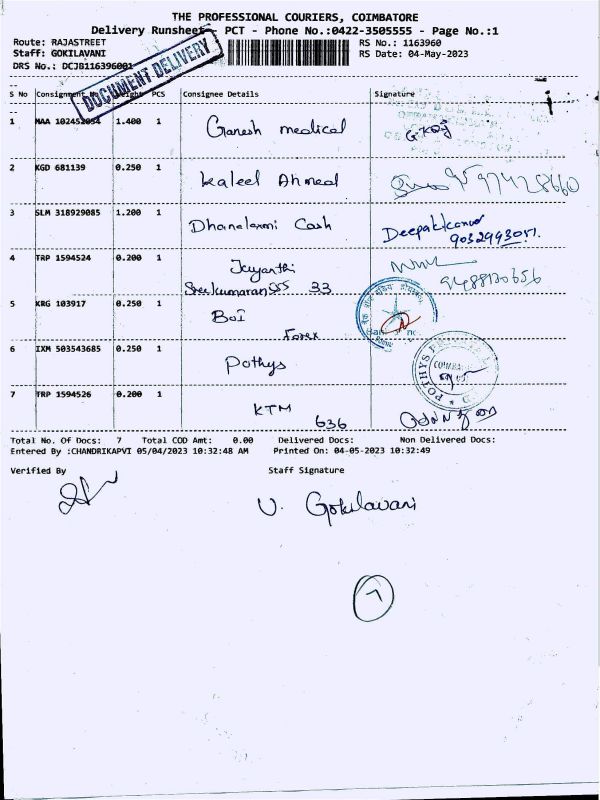 THE PROFESSIONAL COURIERS, COIMBATORE
Delivery Runsheet - PCT - Phone No.:0422-3505555 - Page No.:1
Route: RAJASTREET RS No.: 1163960
Staff: GOKILAVANI RS Date: 04-May-2023
DRS No.: DCJB116396001
DOCUMENT DELIVERY
S No Consignment No Weight PCS Consignee Details Signature
1 MAA 102452054 1.400 1 Ganesh medical
2 KGD 681139 0.250 1 Kaleel Ahmed
3 SLM 318929085 1.200 1 Dhanelaxmi Cash Deepak
4 TRP 1594524 0.200 1 Jayanthi
Sreekumaran 33 9488120656
5 KRG 103917 0.250 1 BoI
Forex
6 IXM 503543685 0.250 1 Pothys POTHYS
7 TRP 1594526 0.200 1 KTM
636
Total No. Of Docs: 7 Total COD Amt: 0.00 Delivered Docs: Non Delivered Docs:
Entered By :CHANDRIKAPVI 05/04/2023 10:32:48 AM Printed On: 04-05-2023 10:32:49
Verified By Staff Signature
V. Gokilavani
7